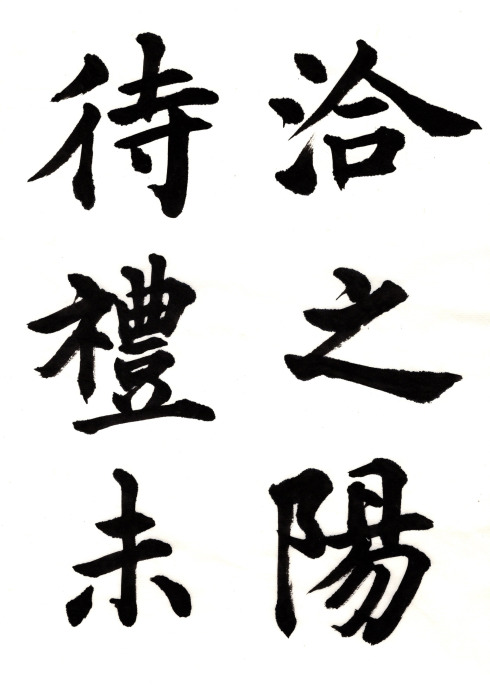 洽之陽
待禮未